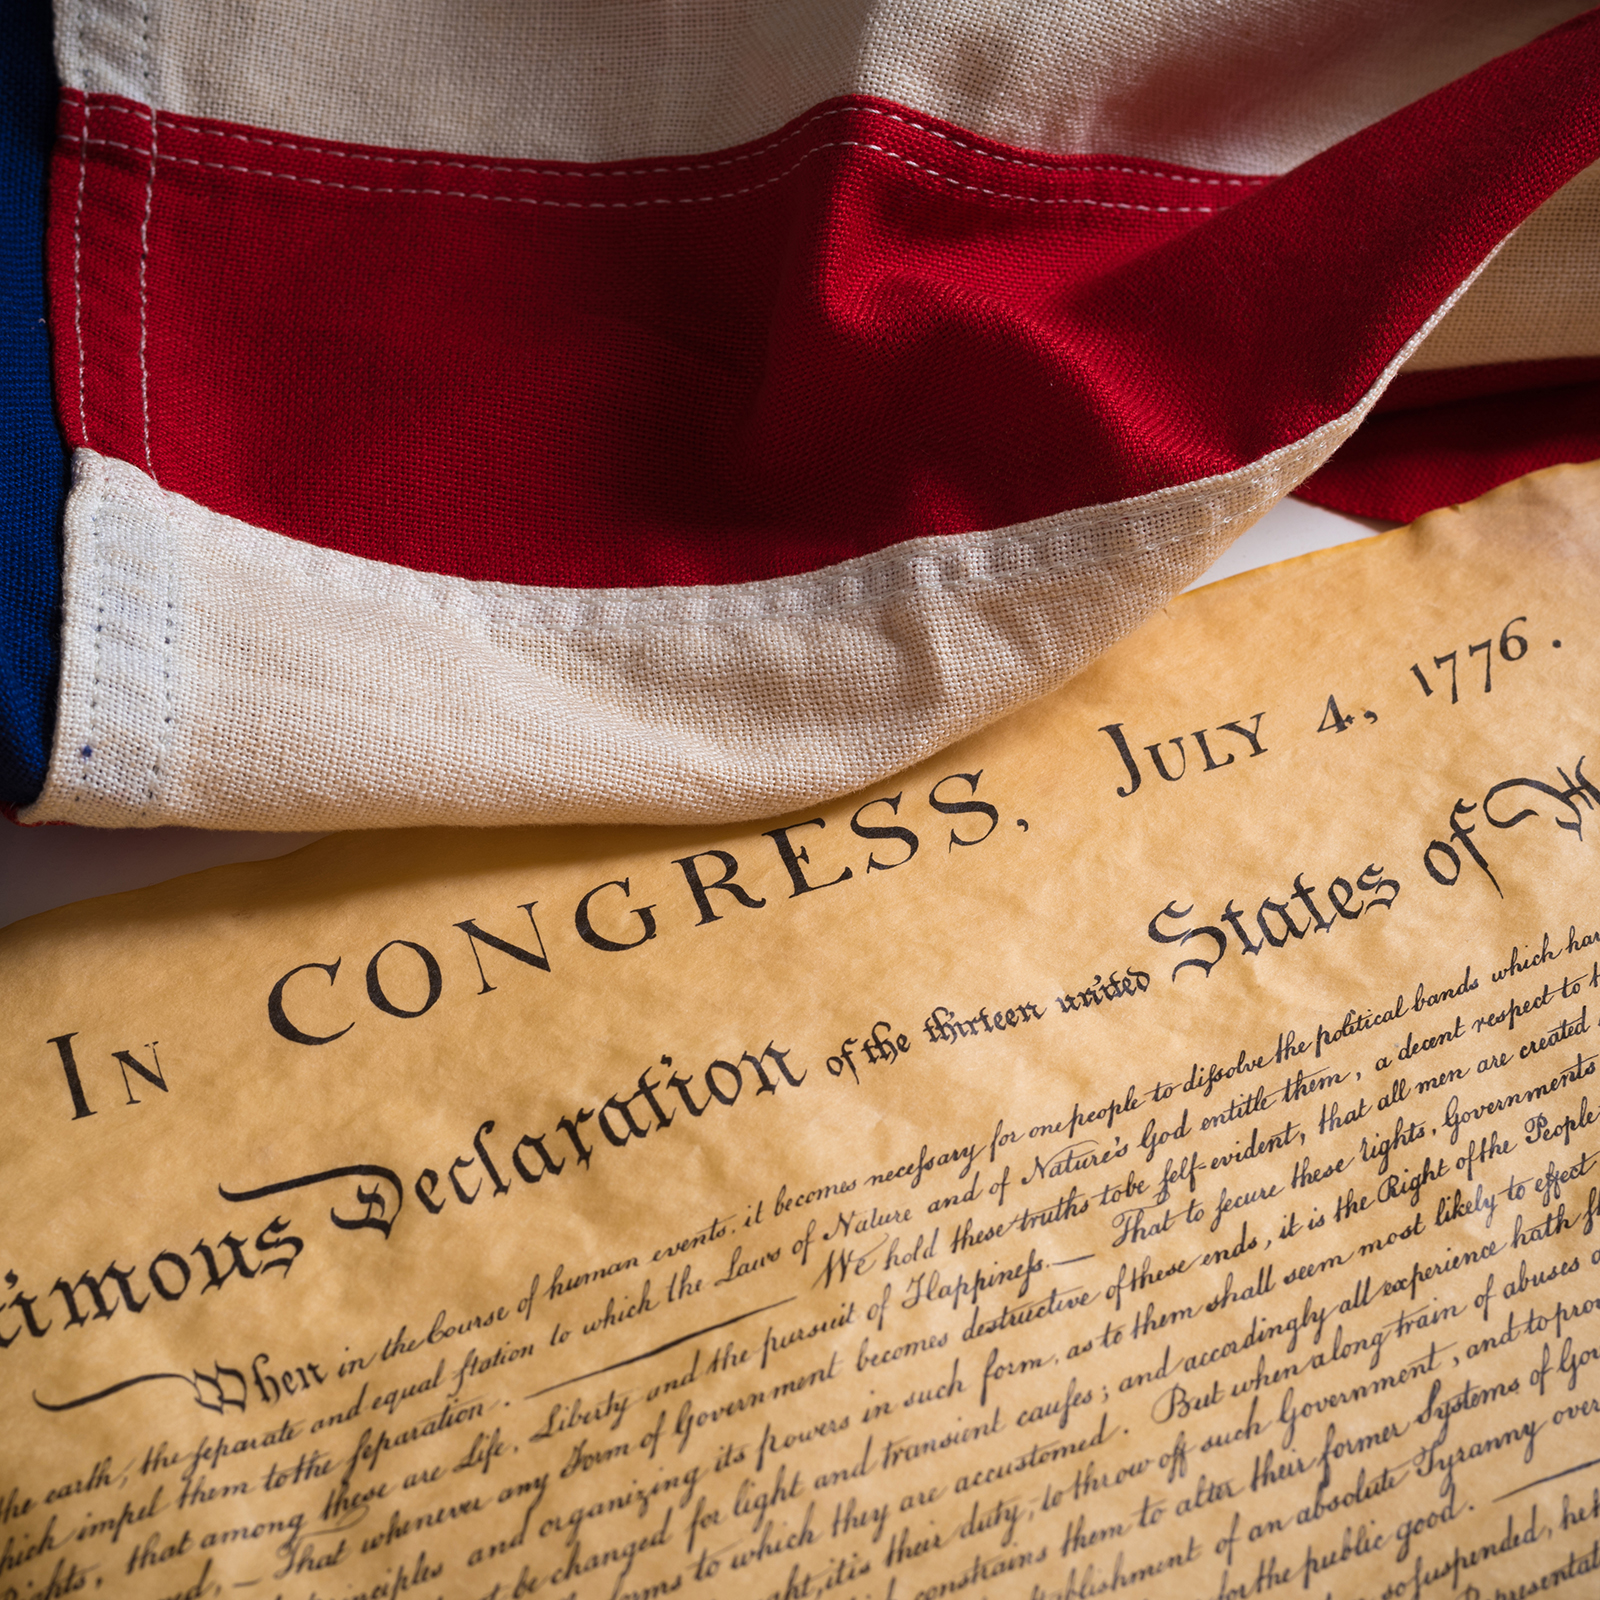 IN CONGRESS, JULY 4, 1776.
imous Declaration of the thirteen united States of
When in the Course of human events, it becomes necessary for one people to dissolve the political bands which
the earth, the separate and equal station to which the Laws of Nature and of Nature's God entitle them, a decent respect to
impel them to the separation. — We hold these truths to be self-evident, that all men are created
that among these are Life, Liberty and the pursuit of Happiness. — That to secure these rights, Governments
— That whenever any Form of Government becomes destructive of these ends, it is the Right of the People
and organizing its powers in such form, as to them shall seem most likely to effect
be changed for light and transient causes; and accordingly all experience hath
to which they are accustomed. But when a long train of abuses
it is their duty, to throw off such Government, and to
constrains them to alter their former Systems of
of an absolute Tyranny over
for the public good. —
so suspended, he